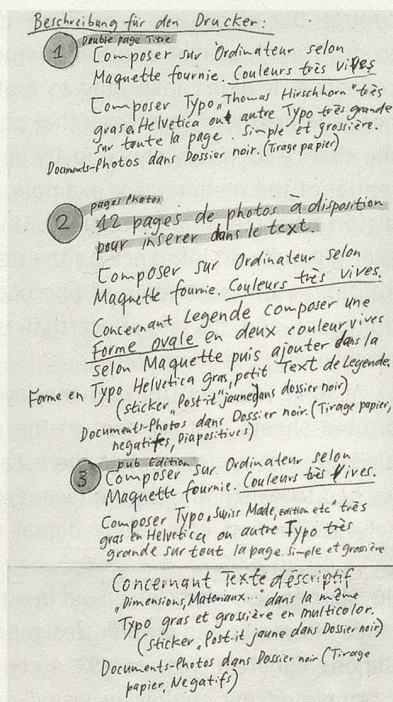 Beschreibung für den Drucker:
Double page Titre
1 Composer sur Ordinateur selon
Maquette fournie. Couleurs très vives
Composer Typo „Thomas Hirschhorn" très
gras à Helvetica out autre Typo très grande
sur toute la page. Simple et grossière.
Documents-Photos dans Dossier noir. (Tirage papier)
pages Photos
2 12 pages de photos à disposition
pour insérer dans le text.
Composer sur Ordinateur selon
Maquette fournie. Couleurs très vives.
Concernant Legende composer une
Forme ovale en deux couleur vives
selon Maquette puis ajouter dans la
Forme en Typo Helvetica gras, petit Text de Legende.
(sticker „Post-it" jaune dans dossier noir)
Documents-Photos dans Dossier noir. (Tirage papier,
negatifes, Diapositives)
pub Edition
3 Composer sur Ordinateur selon
Maquette fournie. Couleurs très Vives.
Composer Typo „Swiss Made, Edition etc" très
gras en Helvetica ou autre Typo très
grande sur tout la page. Simple et grossière
Concernant Texte déscriptif
„Dimensions, Materiaux..." dans la même
Typo gras et grossière en multicolor.
(sticker „Post-it jaune dans Dossier noir)
Documents-Photos dans Dossier noir (Tirage
papier, Negatifs)